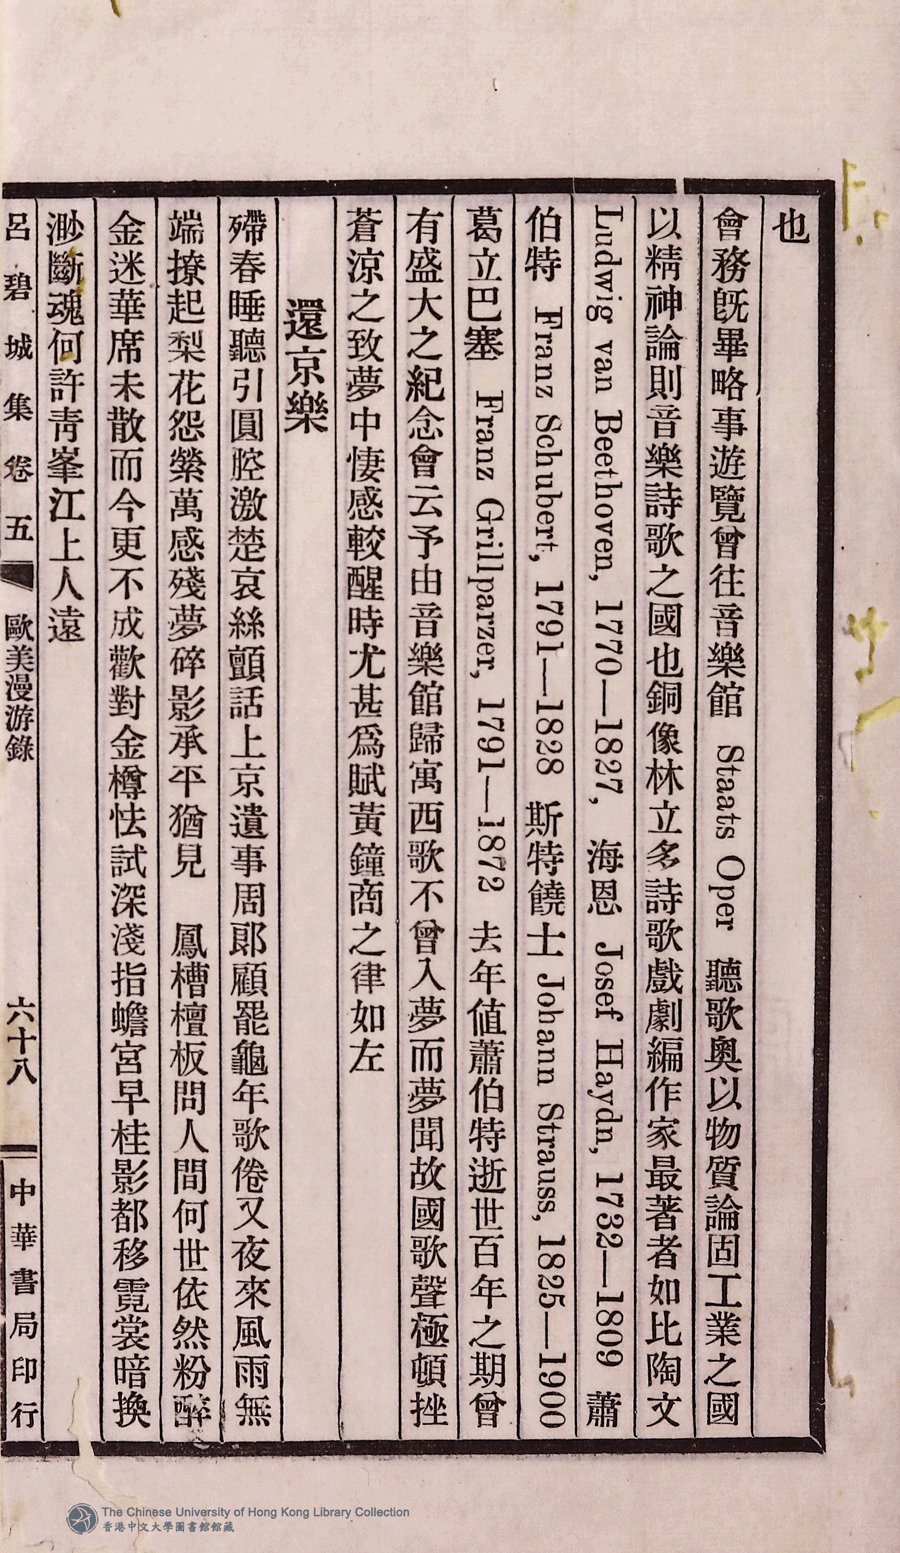 也
會務旣畢略事遊覽曾往音樂館 Staats Oper 聽歌奧以物質論固工業之國
以精神論則音樂詩歌之國也銅像林立多詩歌戲劇編作家最著者如比陶文
Ludwig van Beethoven, 1770—1827, 海恩 Josef Haydn, 1732—1809 蕭
伯特 Franz Schubert, 1791—1828 斯特饒士 Johann Strauss, 1825—1900
葛立巴塞 Franz Grillparzer, 1791—1872 去年値蕭伯特逝世百年之期曾
有盛大之紀念會云予由音樂館歸寓西歌不曾入夢而夢聞故國歌聲極頓挫
蒼涼之致夢中悽感較醒時尤甚爲賦黃鐘商之律如左
還京樂
殢春睡聽引圓腔激楚哀絲顫話上京遺事周郎顧罷龜年歌倦又夜來風雨無
端撩起梨花怨縈萬感殘夢碎影承平猶見 鳳槽檀板問人間何世依然粉醉
金迷華席未散而今更不成歡對金樽怯試深淺指蟾宮早桂影都移霓裳暗換
渺斷魂何許靑峯江上人遠
呂碧城集卷五 歐美漫游錄 六十八 中華書局印行
The Chinese University of Hong Kong Library Collection
香港中文大學圖書館館藏